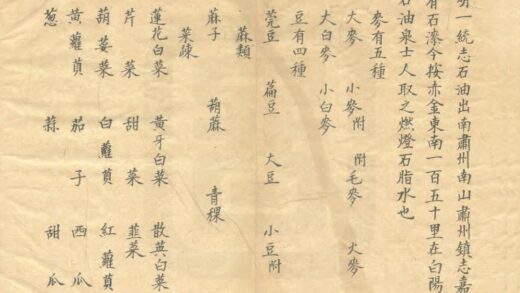 明一統志石油出南肅州南山肅州鎮志嘉
有石漆今按赤金東南一百五十里在白陽
石油泉士人取之燃燈石脂水也
麥有五種
大麥 小麥附 附毛麥 火麥
大白麥 小白麥
豆有四種
豌豆 萹豆 大豆 小豆附
蔴類
蔴子 葫蔴 青稞
菜疎
蓮花白菜 黃牙白菜 散英白菜
芹菜 甜菜 韮菜
葫荽菜 白蘿蔔 紅蘿蔔
黃蘿蔔 茄子 西瓜
葱 蒜 甜瓜